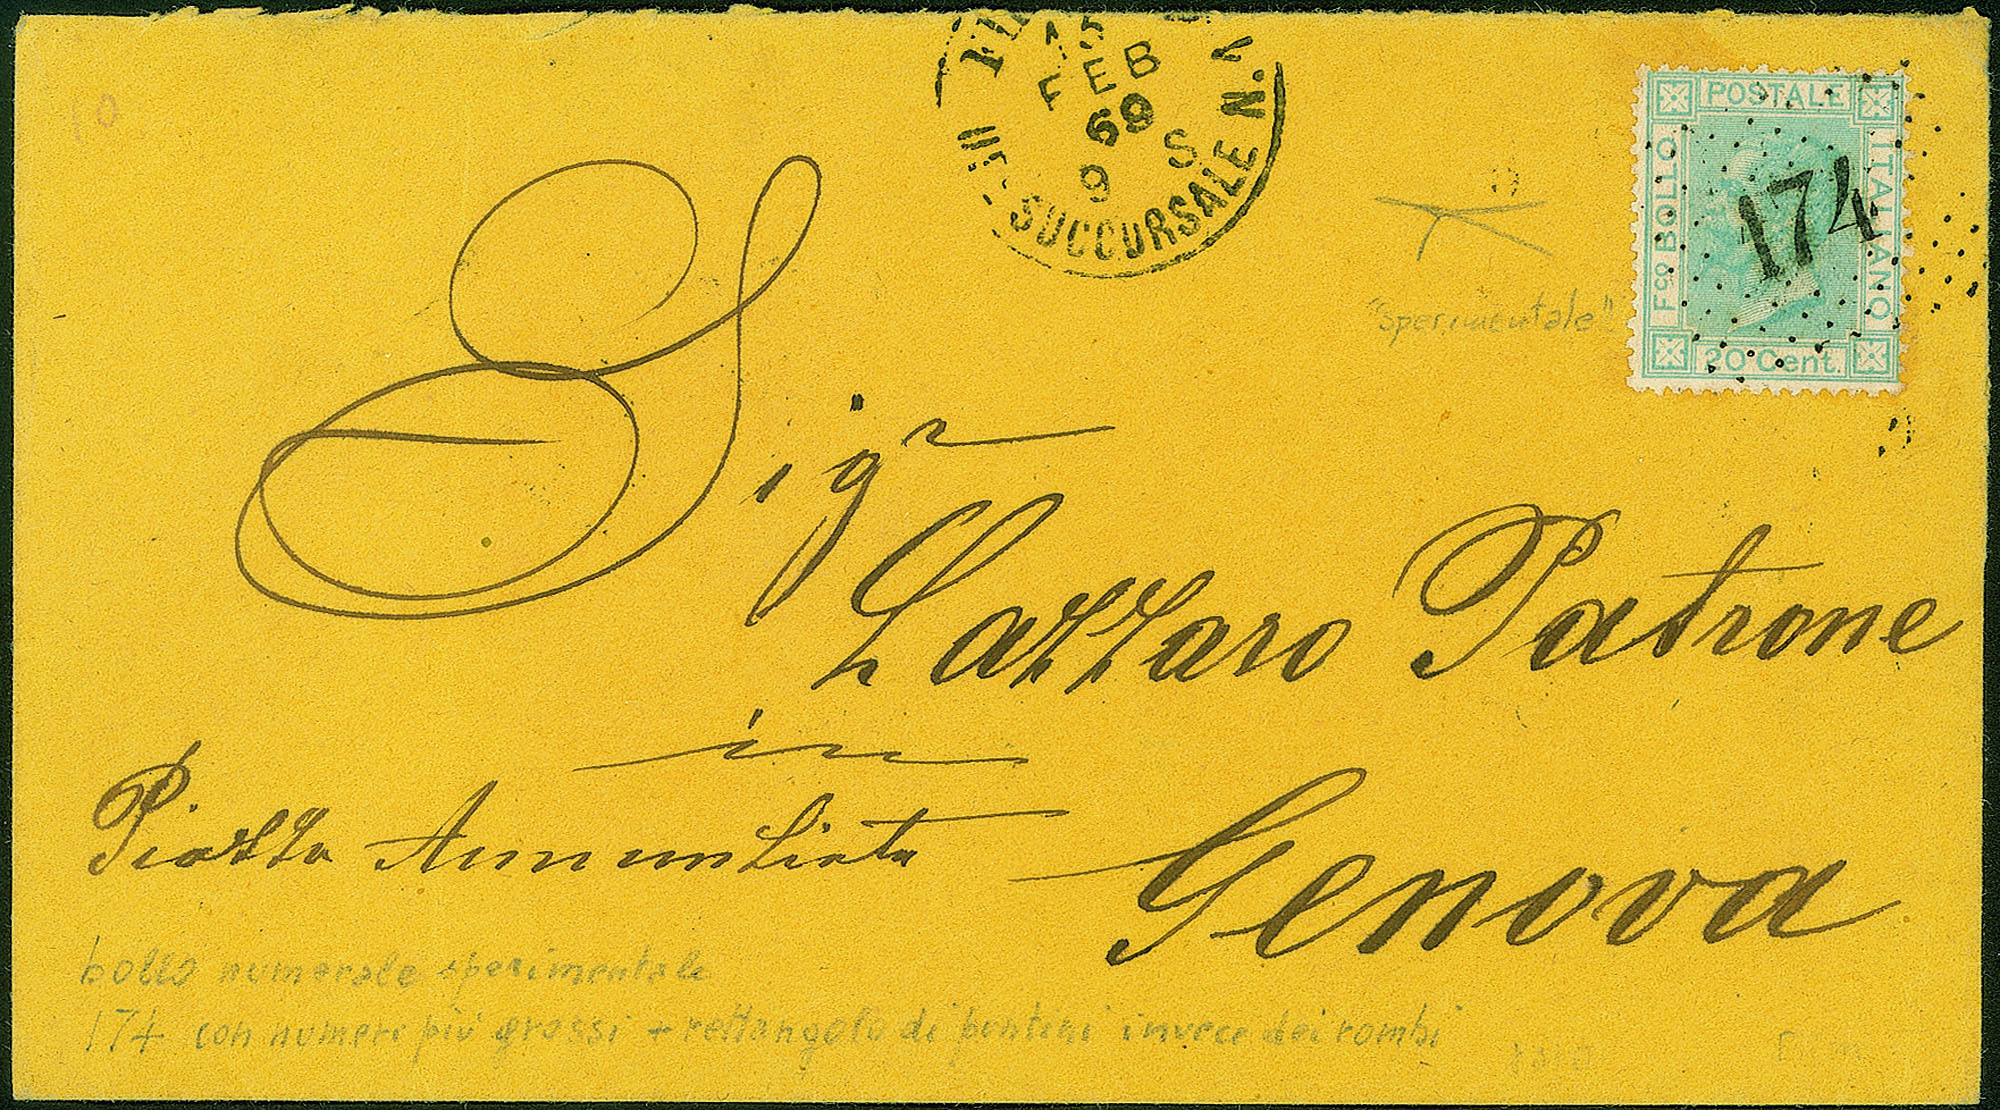 15
FEB
69
9 S
SUCCURSALE N.1
POSTALE
Fco BOLLO
ITALIANO
20 Cent.
174
"sperimentale"
Sigr
Lazzaro Patrone
in
Genova
Piazza Annunziata
bollo numerale sperimentale
174 con numeri più grossi + rettangolo di puntini invece dei rombi